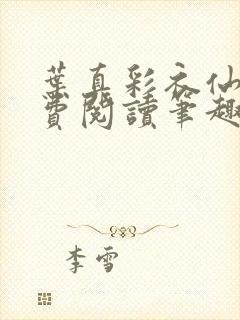 葉真彩衣仙
費閱讀筆趣
李雪